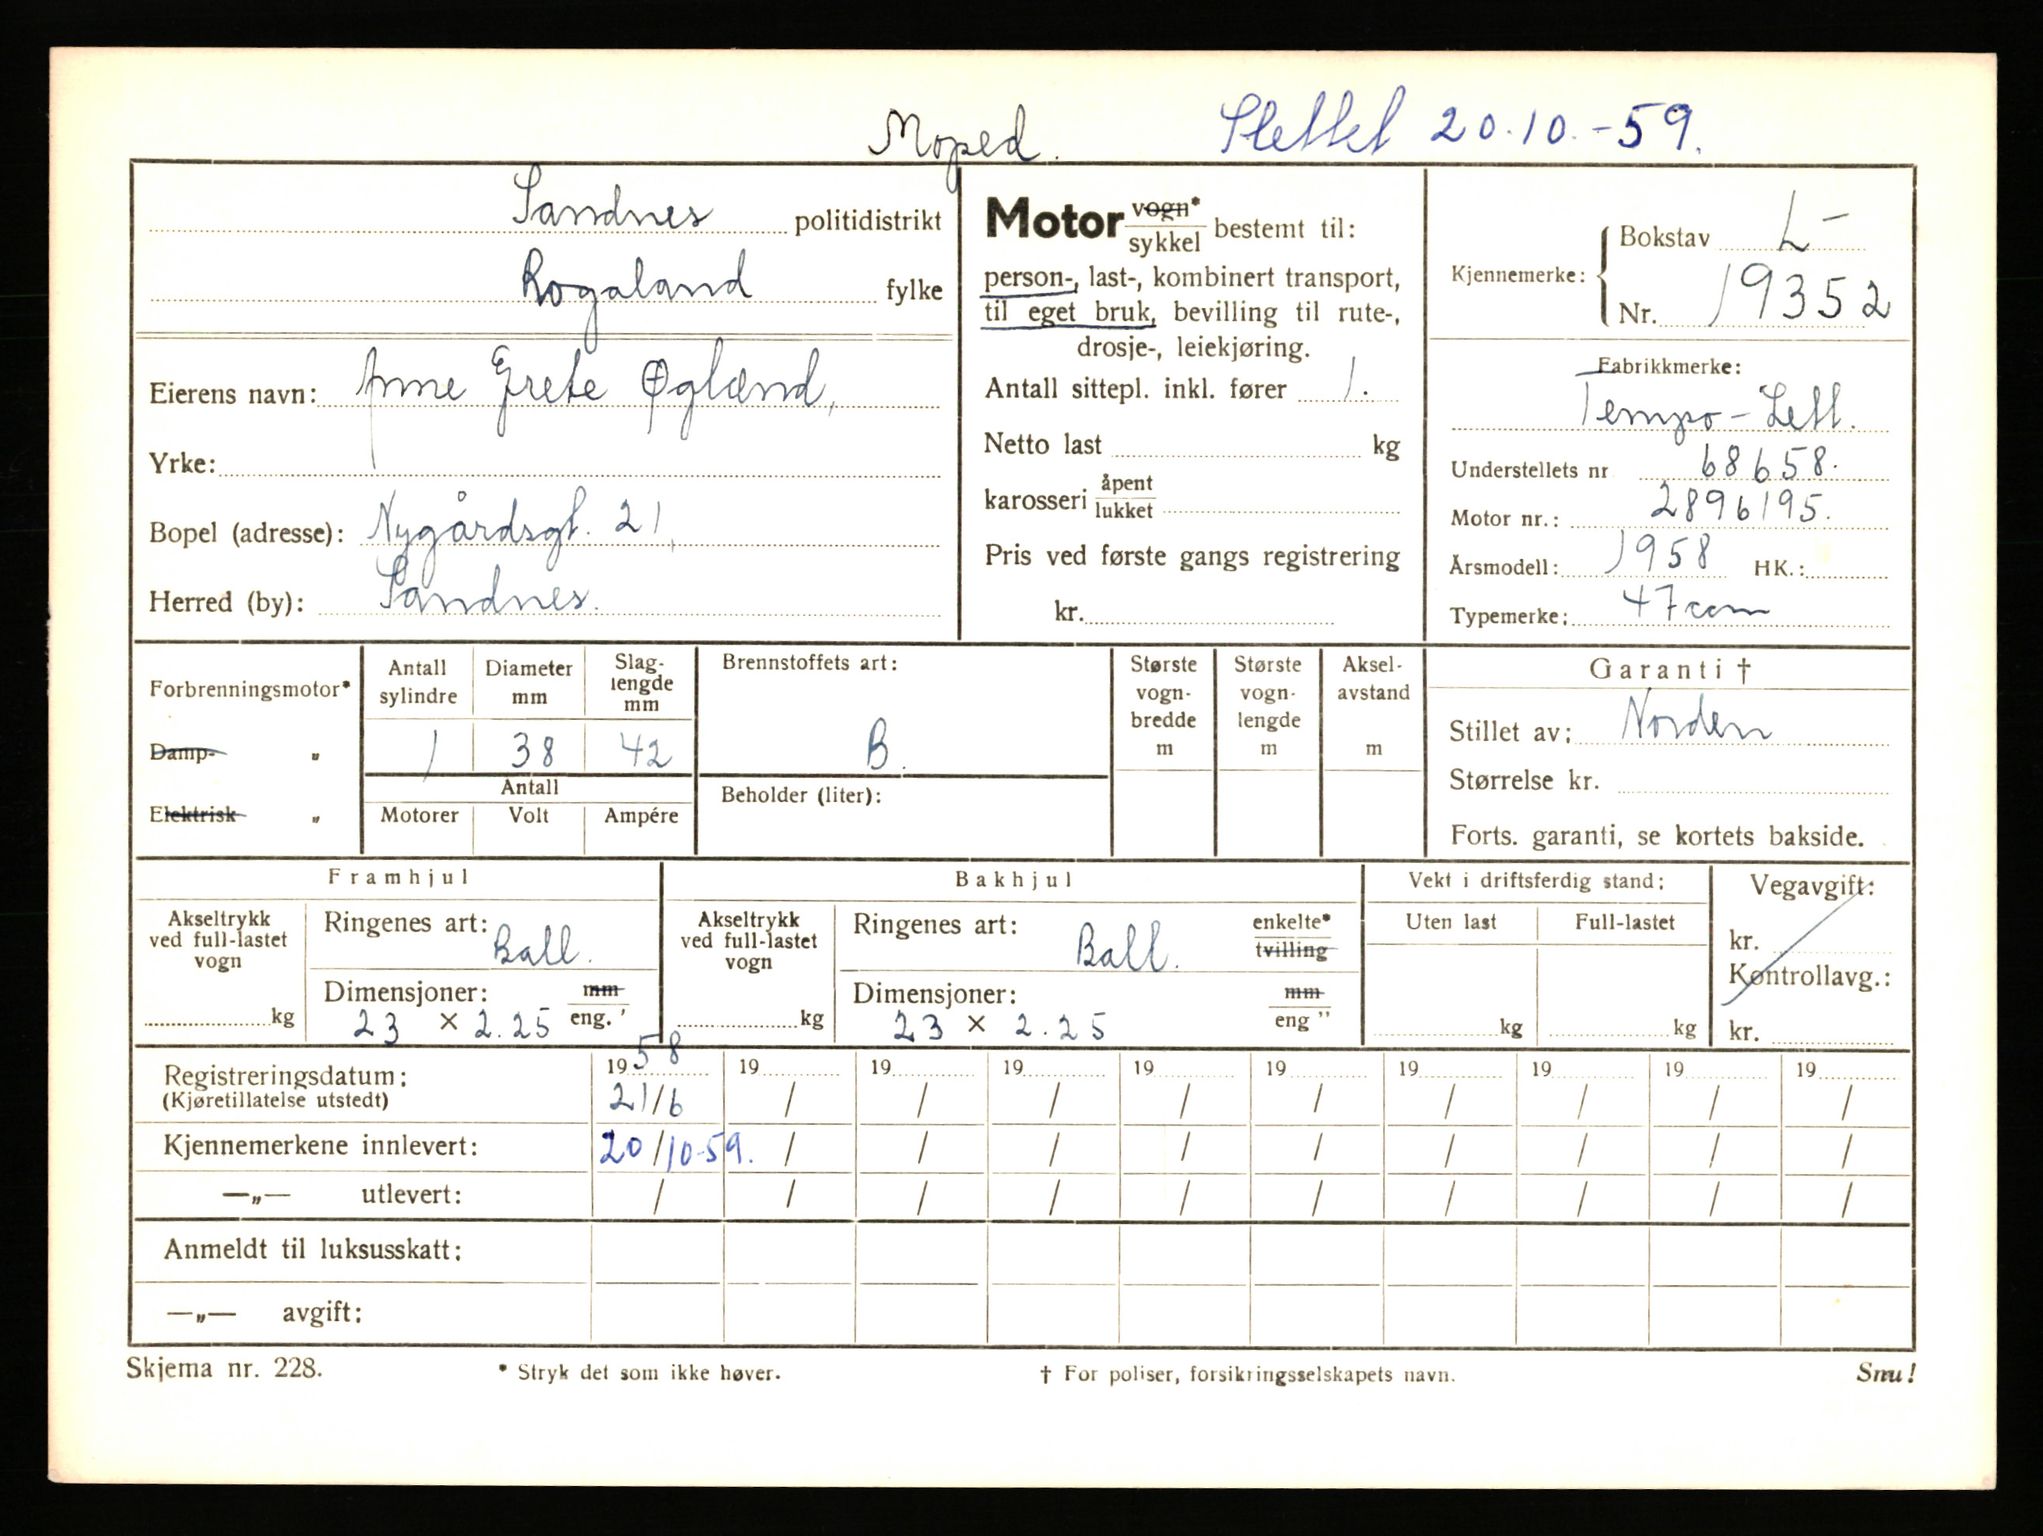 Moped. Slettet 20.10.-59.
Sandnes politidistrikt
Rogaland fylke
Eierens navn: Anne Grete Øglænd,
Yrke:
Bopel (adresse): Nygårdsgt. 21,
Herred (by): Sandnes.
Motor vogn* sykkel bestemt til:
person-, last-, kombinert transport,
til eget bruk, bevilling til rute-,
drosje-, leiekjøring.
Antall sittepl. inkl. fører 1.
Netto last kg
karosseri åpent lukket
Pris ved første gangs registrering
kr.
Kjennemerke: Bokstav L-
Nr. 19352
Fabrikkmerke:
Tempo-Lett.
Understellets nr 68658.
Motor nr.: 2896195.
Årsmodell: 1958 HK.:
Typemerke: 47 ccm
Forbrenningsmotor*
Damp- „
Elektrisk „
Antall sylindre
Diameter mm
Slaglengde mm
1 38 42
Antall
Motorer Volt Ampére
Brennstoffets art:
B.
Beholder (liter):
Største vogn-bredde m
Største vogn-lengde m
Aksel-avstand m
Garanti †
Stillet av: Norden
Størrelse kr.
Forts. garanti, se kortets bakside.
Framhjul
Akseltrykk ved full-lastet vogn
kg
Ringenes art: Ball.
Dimensjoner: mm eng. '
23 × 2.25
Bakhjul
Akseltrykk ved full-lastet vogn
kg
Ringenes art: Ball. enkelte* tvilling
Dimensjoner: mm eng "
23 × 2.25
Vekt i driftsferdig stand:
Uten last Full-lastet
kg kg
Vegavgift:
kr.
Kontrollavg.:
kr.
Registreringsdatum: 1958 19 19 19 19 19 19 19 19 19
(Kjøretillatelse utstedt) 21/6 / / / / / / / / /
Kjennemerkene innlevert: 20/10-59. / / / / / / / / /
—„— utlevert: / / / / / / / / / /
Anmeldt til luksusskatt:
—„— avgift:
Skjema nr. 228. * Stryk det som ikke høver. † For poliser, forsikringsselskapets navn. Snu!